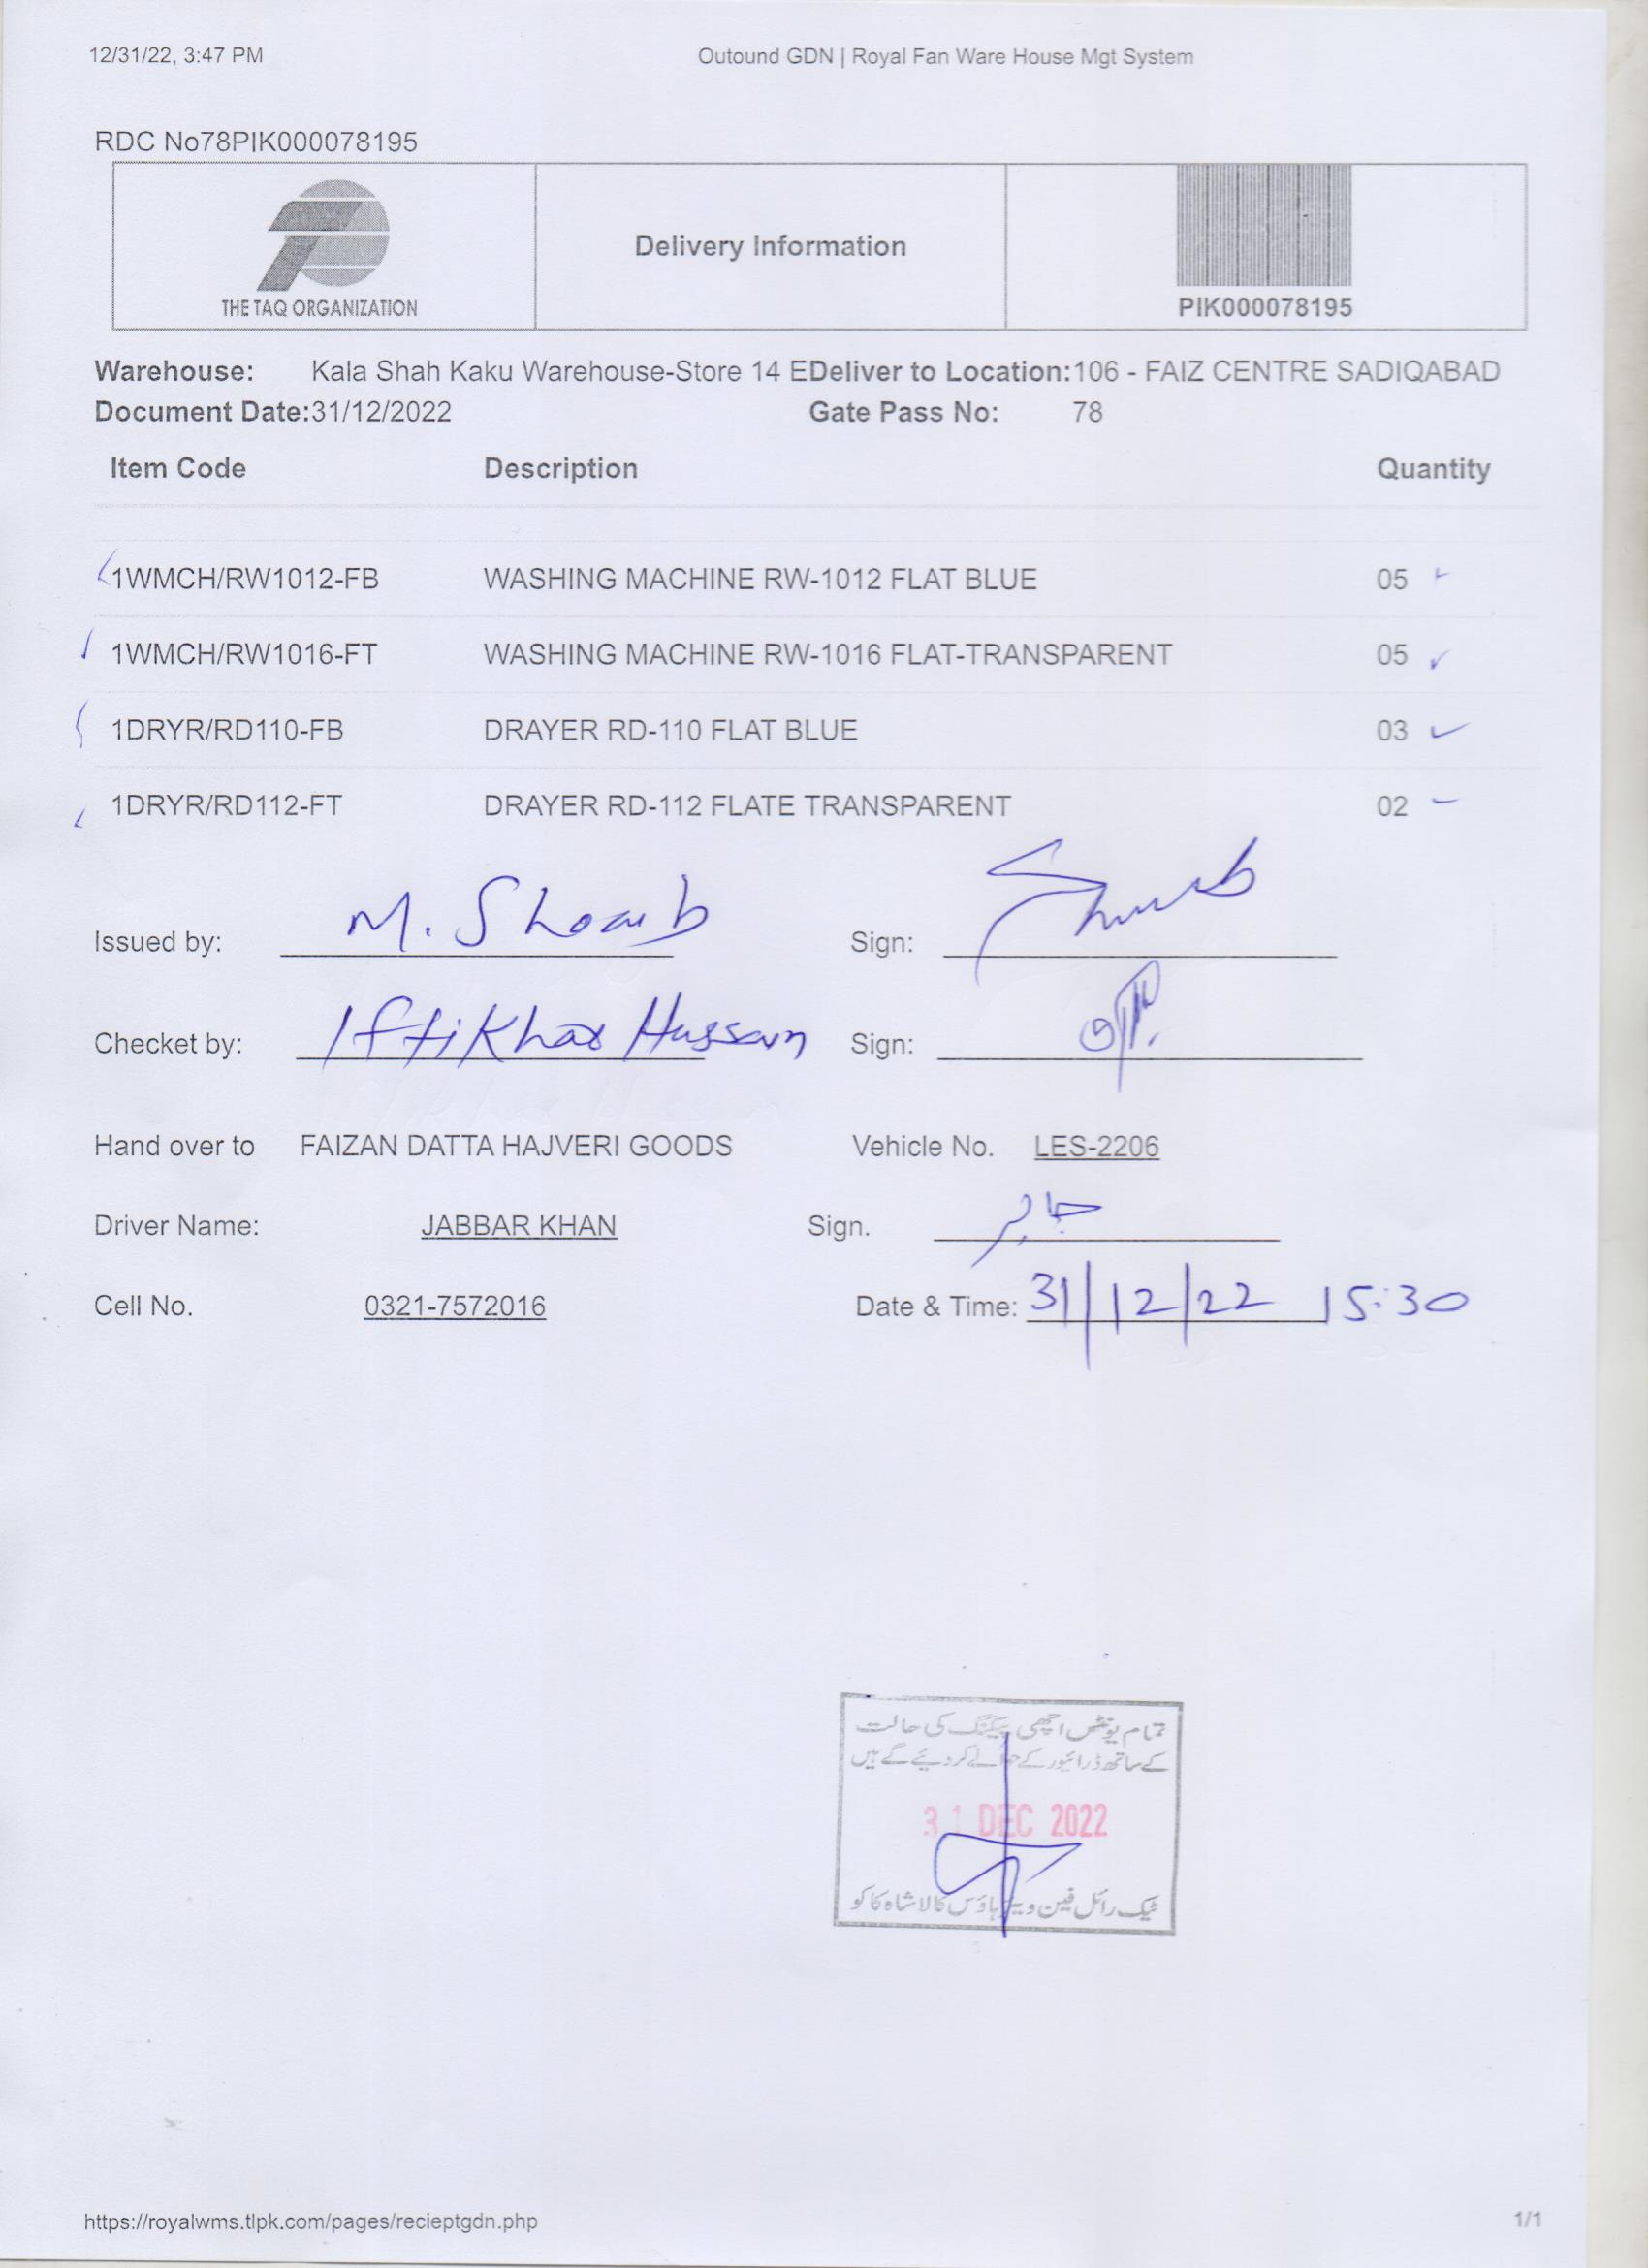 12/31/22, 3:47 PM Outound GDN | Royal Fan Ware House Mgt System
RDC No78PIK000078195
THE TAQ ORGANIZATION
Delivery Information
PIK000078195
Warehouse: Kala Shah Kaku Warehouse-Store 14 EDeliver to Location:106 - FAIZ CENTRE SADIQABAD
Document Date:31/12/2022 Gate Pass No: 78
Item Code Description Quantity
1WMCH/RW1012-FB WASHING MACHINE RW-1012 FLAT BLUE 05
1WMCH/RW1016-FT WASHING MACHINE RW-1016 FLAT-TRANSPARENT 05
1DRYR/RD110-FB DRAYER RD-110 FLAT BLUE 03
1DRYR/RD112-FT DRAYER RD-112 FLATE TRANSPARENT 02
Issued by: M. Shoaib Sign:
Checket by: Iftikhar Hussain Sign:
Hand over to FAIZAN DATTA HAJVERI GOODS Vehicle No. LES-2206
Driver Name: JABBAR KHAN Sign. جابر
Cell No. 0321-7572016 Date & Time: 31/12/22 15:30
تمام یونٹس اچھی پیکنگ کی حالت
کے ساتھ ڈرائیور کے حوالے کر دیئے گے ہیں
31 DEC 2022
ٹیک رائل فین ویئر ہاؤس کالا شاہ کاکو
https://royalwms.tlpk.com/pages/recieptgdn.php 1/1